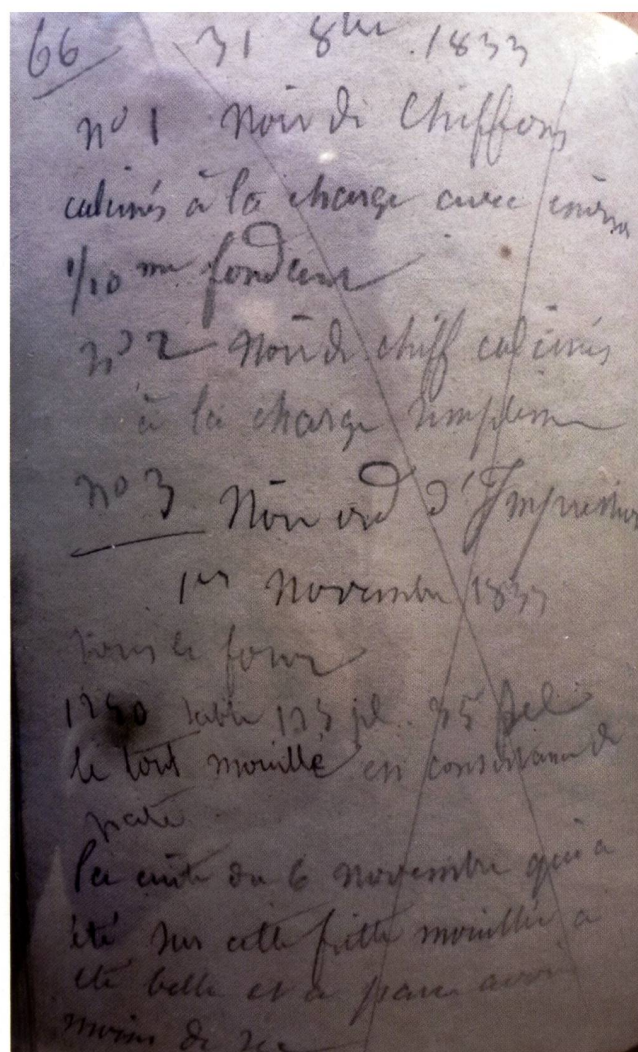 66 31 8bre 1833
n° 1 Noir de Chiffons
calcinés à la charge avec environ
1/10 me fondant
n° 2 Noir de chiff calcinés
à la charge simplemen
n° 3 Noir ord d'Impression
1er Novembre 1833
sous le four
1250 sable 125
le tout mouillé en consistance de
pate
la cuite du 6 novembre qui a
été sur cette fritte mouillée a
été belle et a paru avoir
moins de